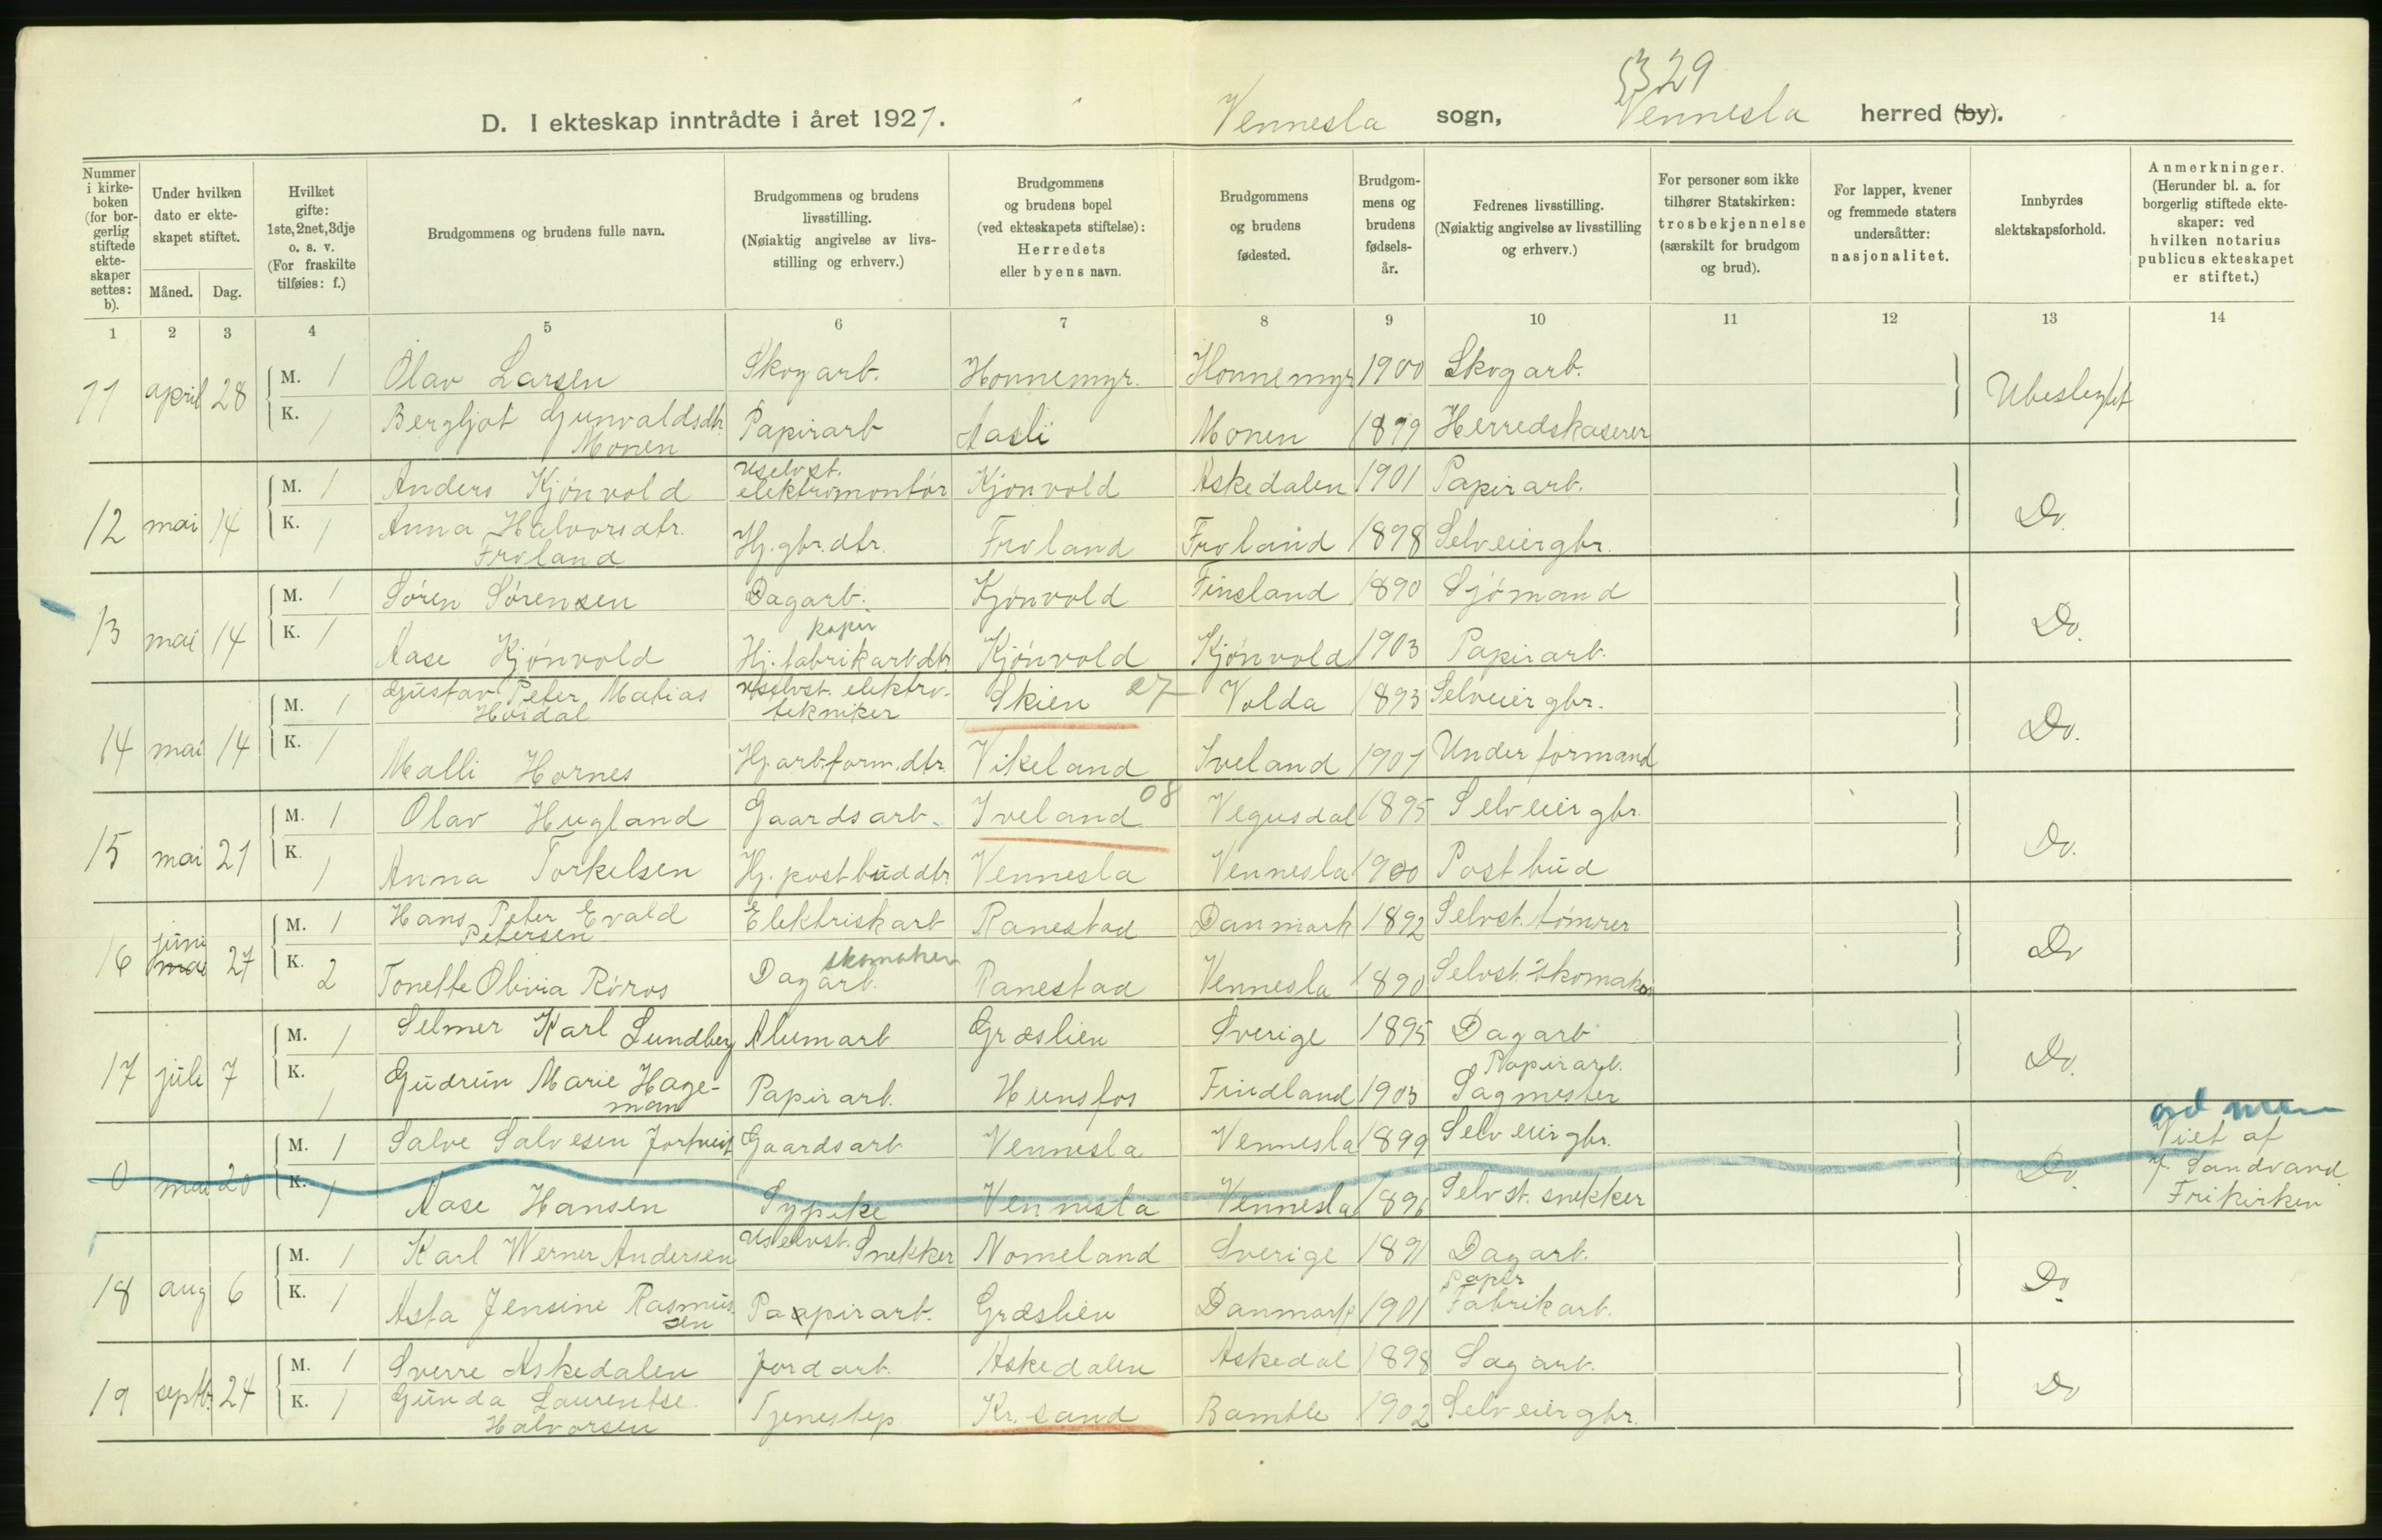 §3 29
D. I ekteskap inntrådte i året 1921. Vennesla sogn, Vennesla herred (by).
Nummer i kirkeboken (for borgerlig stiftede ekteskaper settes: b).
Under hvilken dato er ekteskapet stiftet.
Måned. Dag.
Hvilket gifte: 1ste, 2net, 3dje o. s. v. (For fraskilte tilføies: f.)
Brudgommens og brudens fulle navn.
Brudgommens og brudens livsstilling. (Nøiaktig angivelse av livsstilling og erhverv.)
Brudgommens og brudens bopel (ved ekteskapets stiftelse): Herredets eller byens navn.
Brudgommens og brudens fødested.
Brudgommens og brudens fødselsår.
Fedrenes livsstilling. (Nøiaktig angivelse av livsstilling og erhverv.)
For personer som ikke tilhører Statskirken: trosbekjennelse (særskilt for brudgom og brud).
For lapper, kvener og fremmede staters undersåtter: nasjonalitet.
Innbyrdes slektskapsforhold.
Anmerkninger. (Herunder bl. a. for borgerlig stiftede ekteskaper: ved hvilken notarius publicus ekteskapet er stiftet.)
1 2 3 4 5 6 7 8 9 10 11 12 13 14
11 april 28 M. 1 Olav Larsen Skogarb. Honnemyr. Honnemyr 1900 Skogarb. Ubeslegtet
K. 1 Bergljot Gunvaldsdtr. Monen Papirarb Aasli Monen 1899 Herredskaserer
12 mai 14 M. 1 Anders Kjönvold uselvst. elektromontör Kjönvold Askedalen 1901 Papirarb. Do.
K. 1 Anna Halvorsdtr. Froland Hj. gbr. dtr. Froland Froland 1898 Selveiergbr.
13 mai 14 M. 1 Sören Sörensen Dagarb. Kjönvold Finsland 1890 Sjömand Do.
K. 1 Aase Kjönvold Hj. papir fabrikarb dtr Kjönvold Kjönvold 1903 Papirarb.
14 mai 14 M. 1 Gustav Peter Matias Höidal Uselvst. elektrotekniker Skien 27 Volda 1893 Selveiergbr. Do.
K. 1 Malli Hornes Hj arb.form.dtr. Vikeland Iveland 1901 Underformand
15 mai 21 M. 1 Olav Hugland Gaardsarb. Iveland 08 Vegusdal 1895 Selveiergbr. Do.
K. 1 Anna Torkelsen Hj. postbud dtr Vennesla Vennesla 1900 Postbud
16 juni mai 27 M. 1 Hans Peter Evald Petersen Elektriskarb Ranestad Danmark 1892 Selvst. tömrer Do
K. 2 Tonette Olivia Röros Dagarb. skomaker Ranestad Vennesla 1890 Selvst. skomaker
17 juli 7 M. 1 Selmer Karl Lundberg Alumarb Græslien Sverige 1895 Dagarb Do.
K. 1 Gudrun Marie Hageman Papirarb. Hunsfos Findland 1903 Papirarb. Sagmester
0 mai 20 M. 1 Salve Salvesen Jortveit Gaardsarb Vennesla Vennesla 1899 Selveiergbr. Do. Viet af J. Sandvand Frikirken
K. 1 Aase Hansen Sypike Vennesla Vennesla 1896 Selvst. snekker
18 aug 6 M. 1 Karl Werner Andersen Uselvst. Snekker Nomeland Sverige 1891 Dagarb. Do.
K. 1 Asta Jensine Rasmussen Papirarb. Græslien Danmark 1901 Papir Fabrikarb.
19 septbr. 24 M. 1 Sverre Askedalen Jordarb. Askedalen Askedal 1898 Sagarb. Do
K. 1 Gunda Laurentse Halvorsen Tjenestep. Kr.sand Bamble 1902 Selveiergbr.